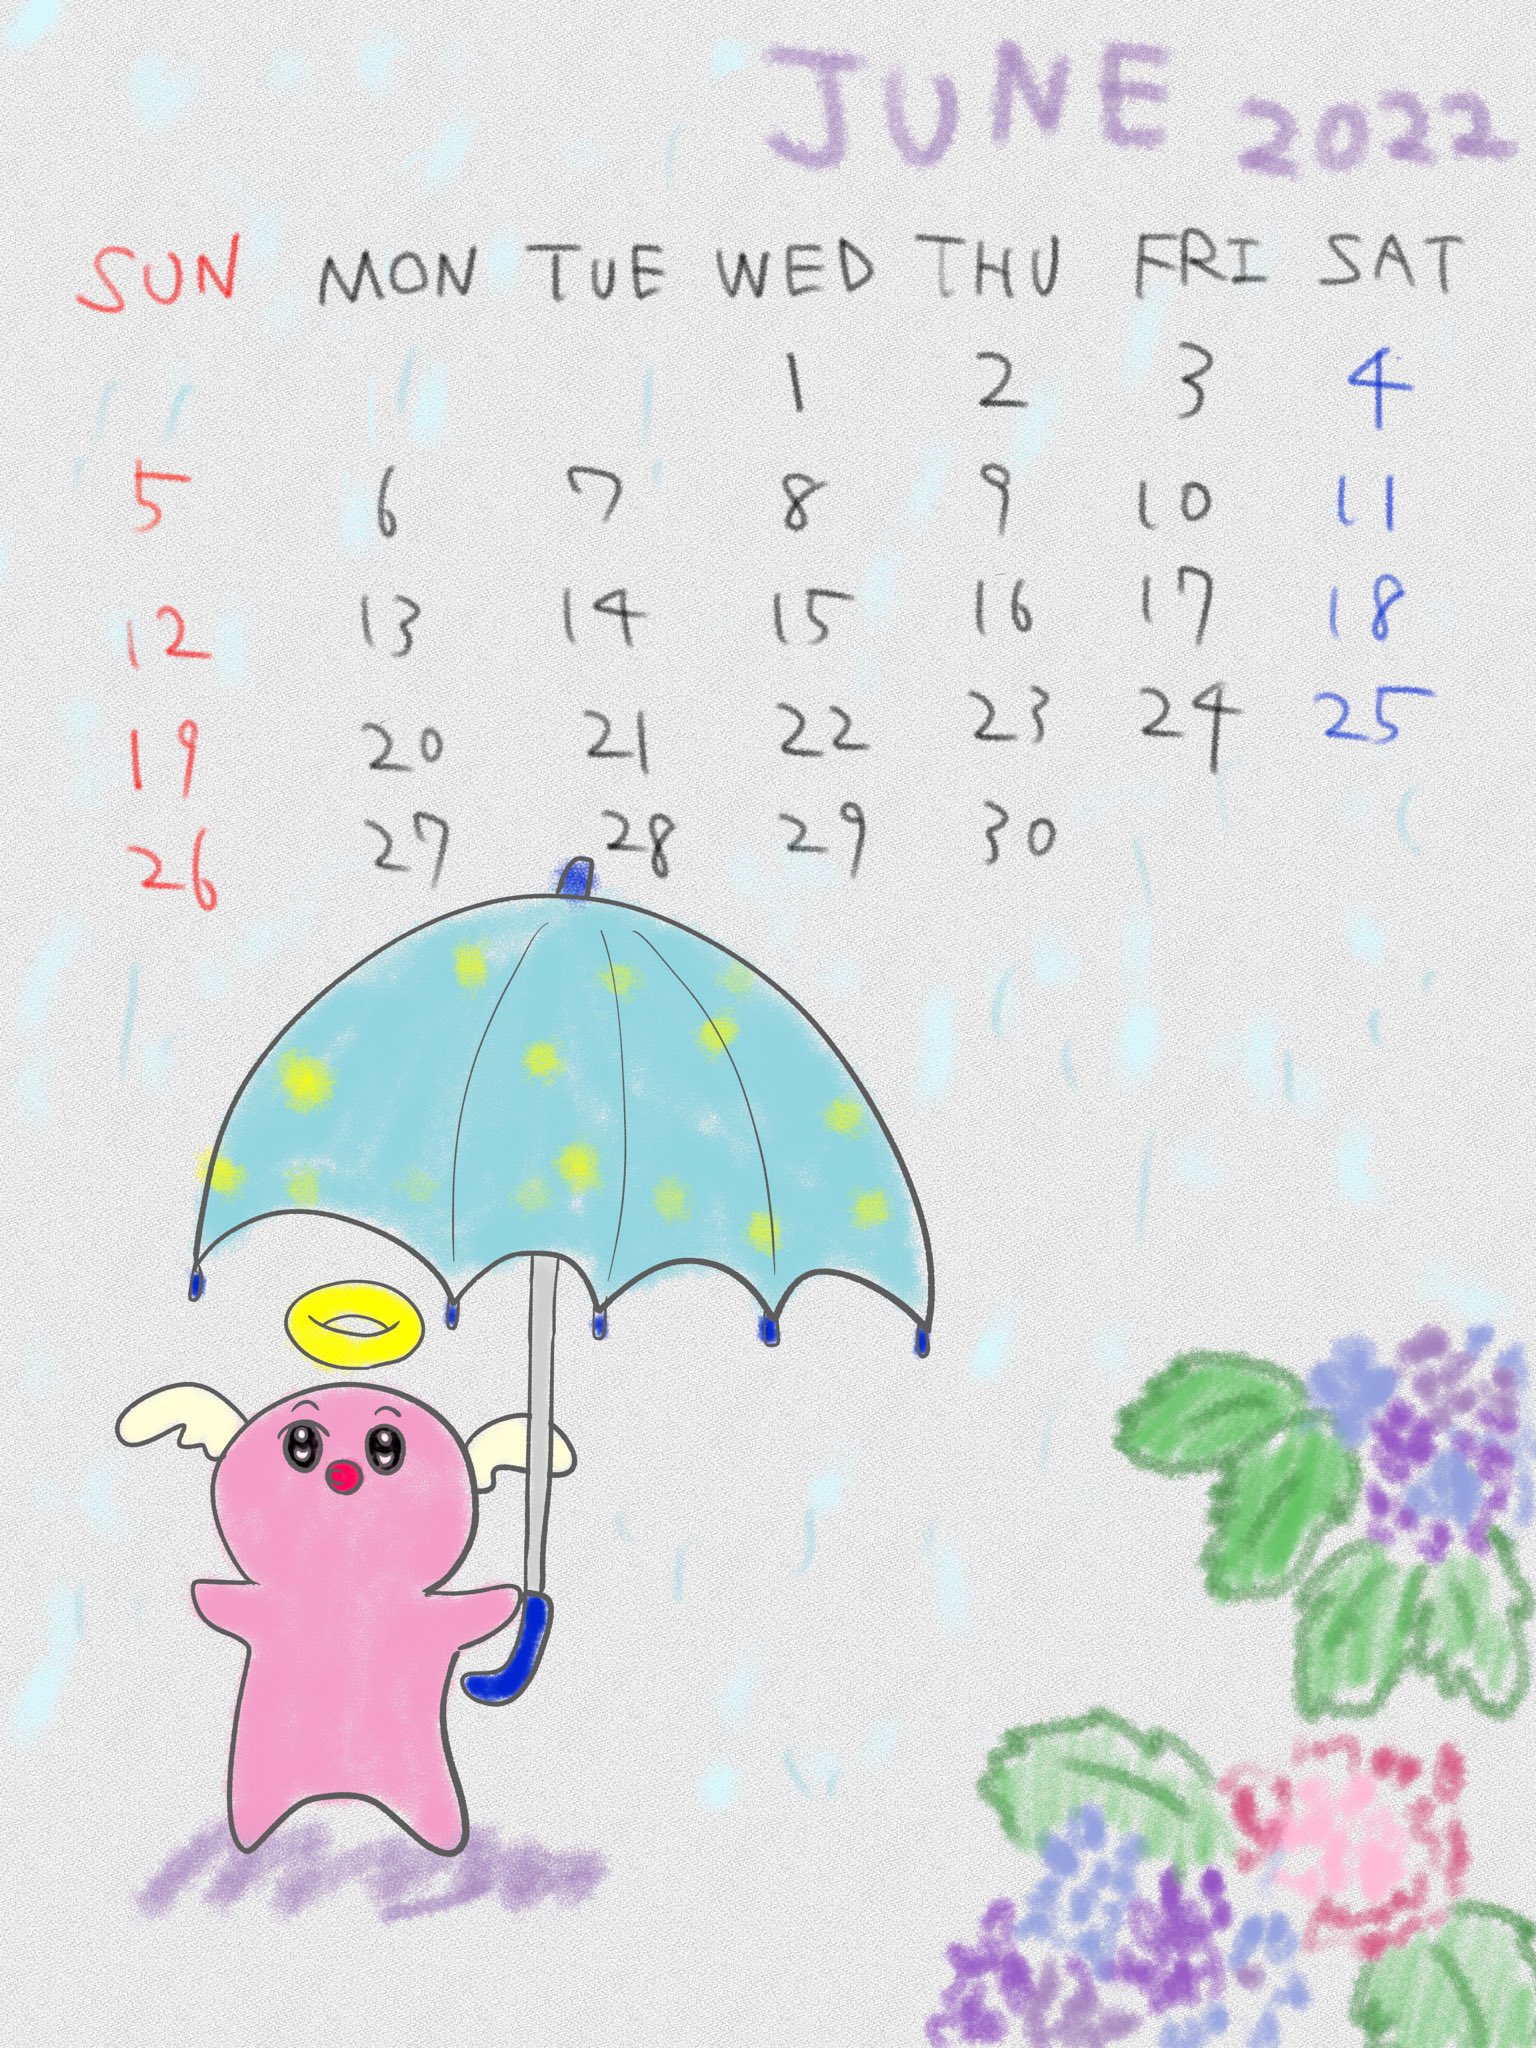 JUNE 2022
SUN MON TUE WED THU FRI SAT
1 2 3 4
5 6 7 8 9 10 11
12 13 14 15 16 17 18
19 20 21 22 23 24 25
26 27 28 29 30